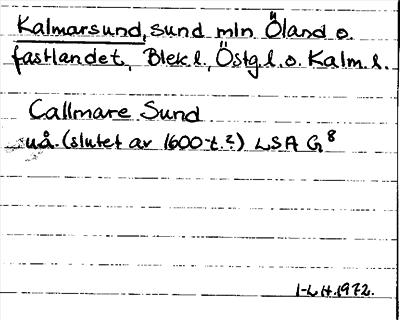 Kalmarsund, sund mln Öland o.
fastlandet, Blek.l., Östg.l. o. Kalm.l.
Callmare Sund
u.å. (slutet av 1600-t.?) LSA G8
I-L H. 1972.